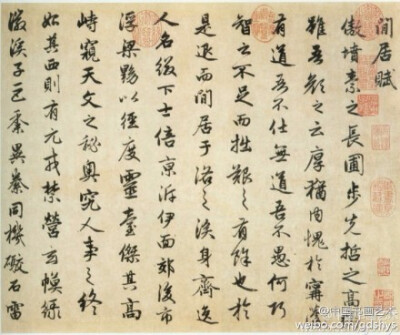 閒居賦
傲墳素之長圃步先哲之高衢
雖吾顏之云厚猶內愧於甯蘧
有道吾不仕無道吾不愚何巧
智之不足而拙艱之有餘也於
是退而閒居于洛之涘身齊逸
人名綴下士倍京泝伊面郊後市
浮梁黝以徑度靈臺傑其高
峙窺天文之秘奧究人事之終
始其西則有元戎禁營玄幙綠
徽谿子巨黍異絭同機礮石雷
@中国书画艺术
weibo.com/gdshys